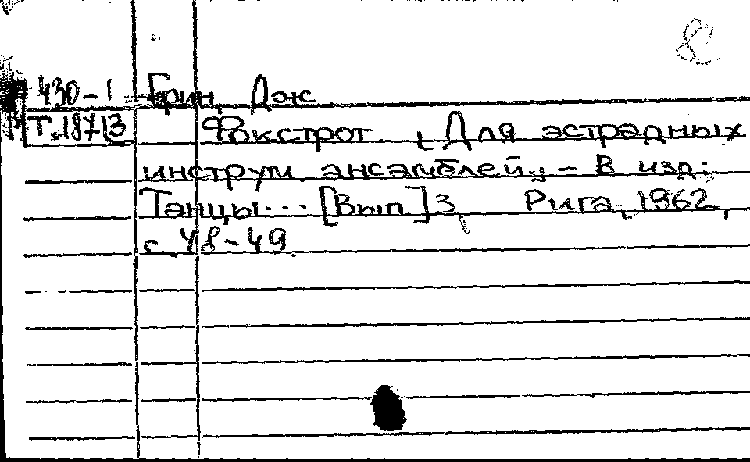 430-1 Грин, Дж.
Т.1871/3 Фокстрот. [Для эстрадных
инструм. ансамблей]. – В изд.:
Танцы... [Вып.] 3, Рига, 1962,
с. 48-49.